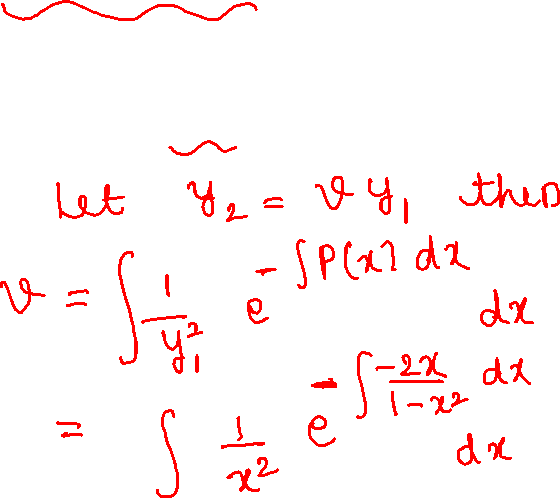 Let y₂ = v y₁ then
v = ∫ 1/y₁² e^(-∫P(x) dx) dx
= ∫ 1/x² e^(-∫ -2x/(1-x²) dx) dx